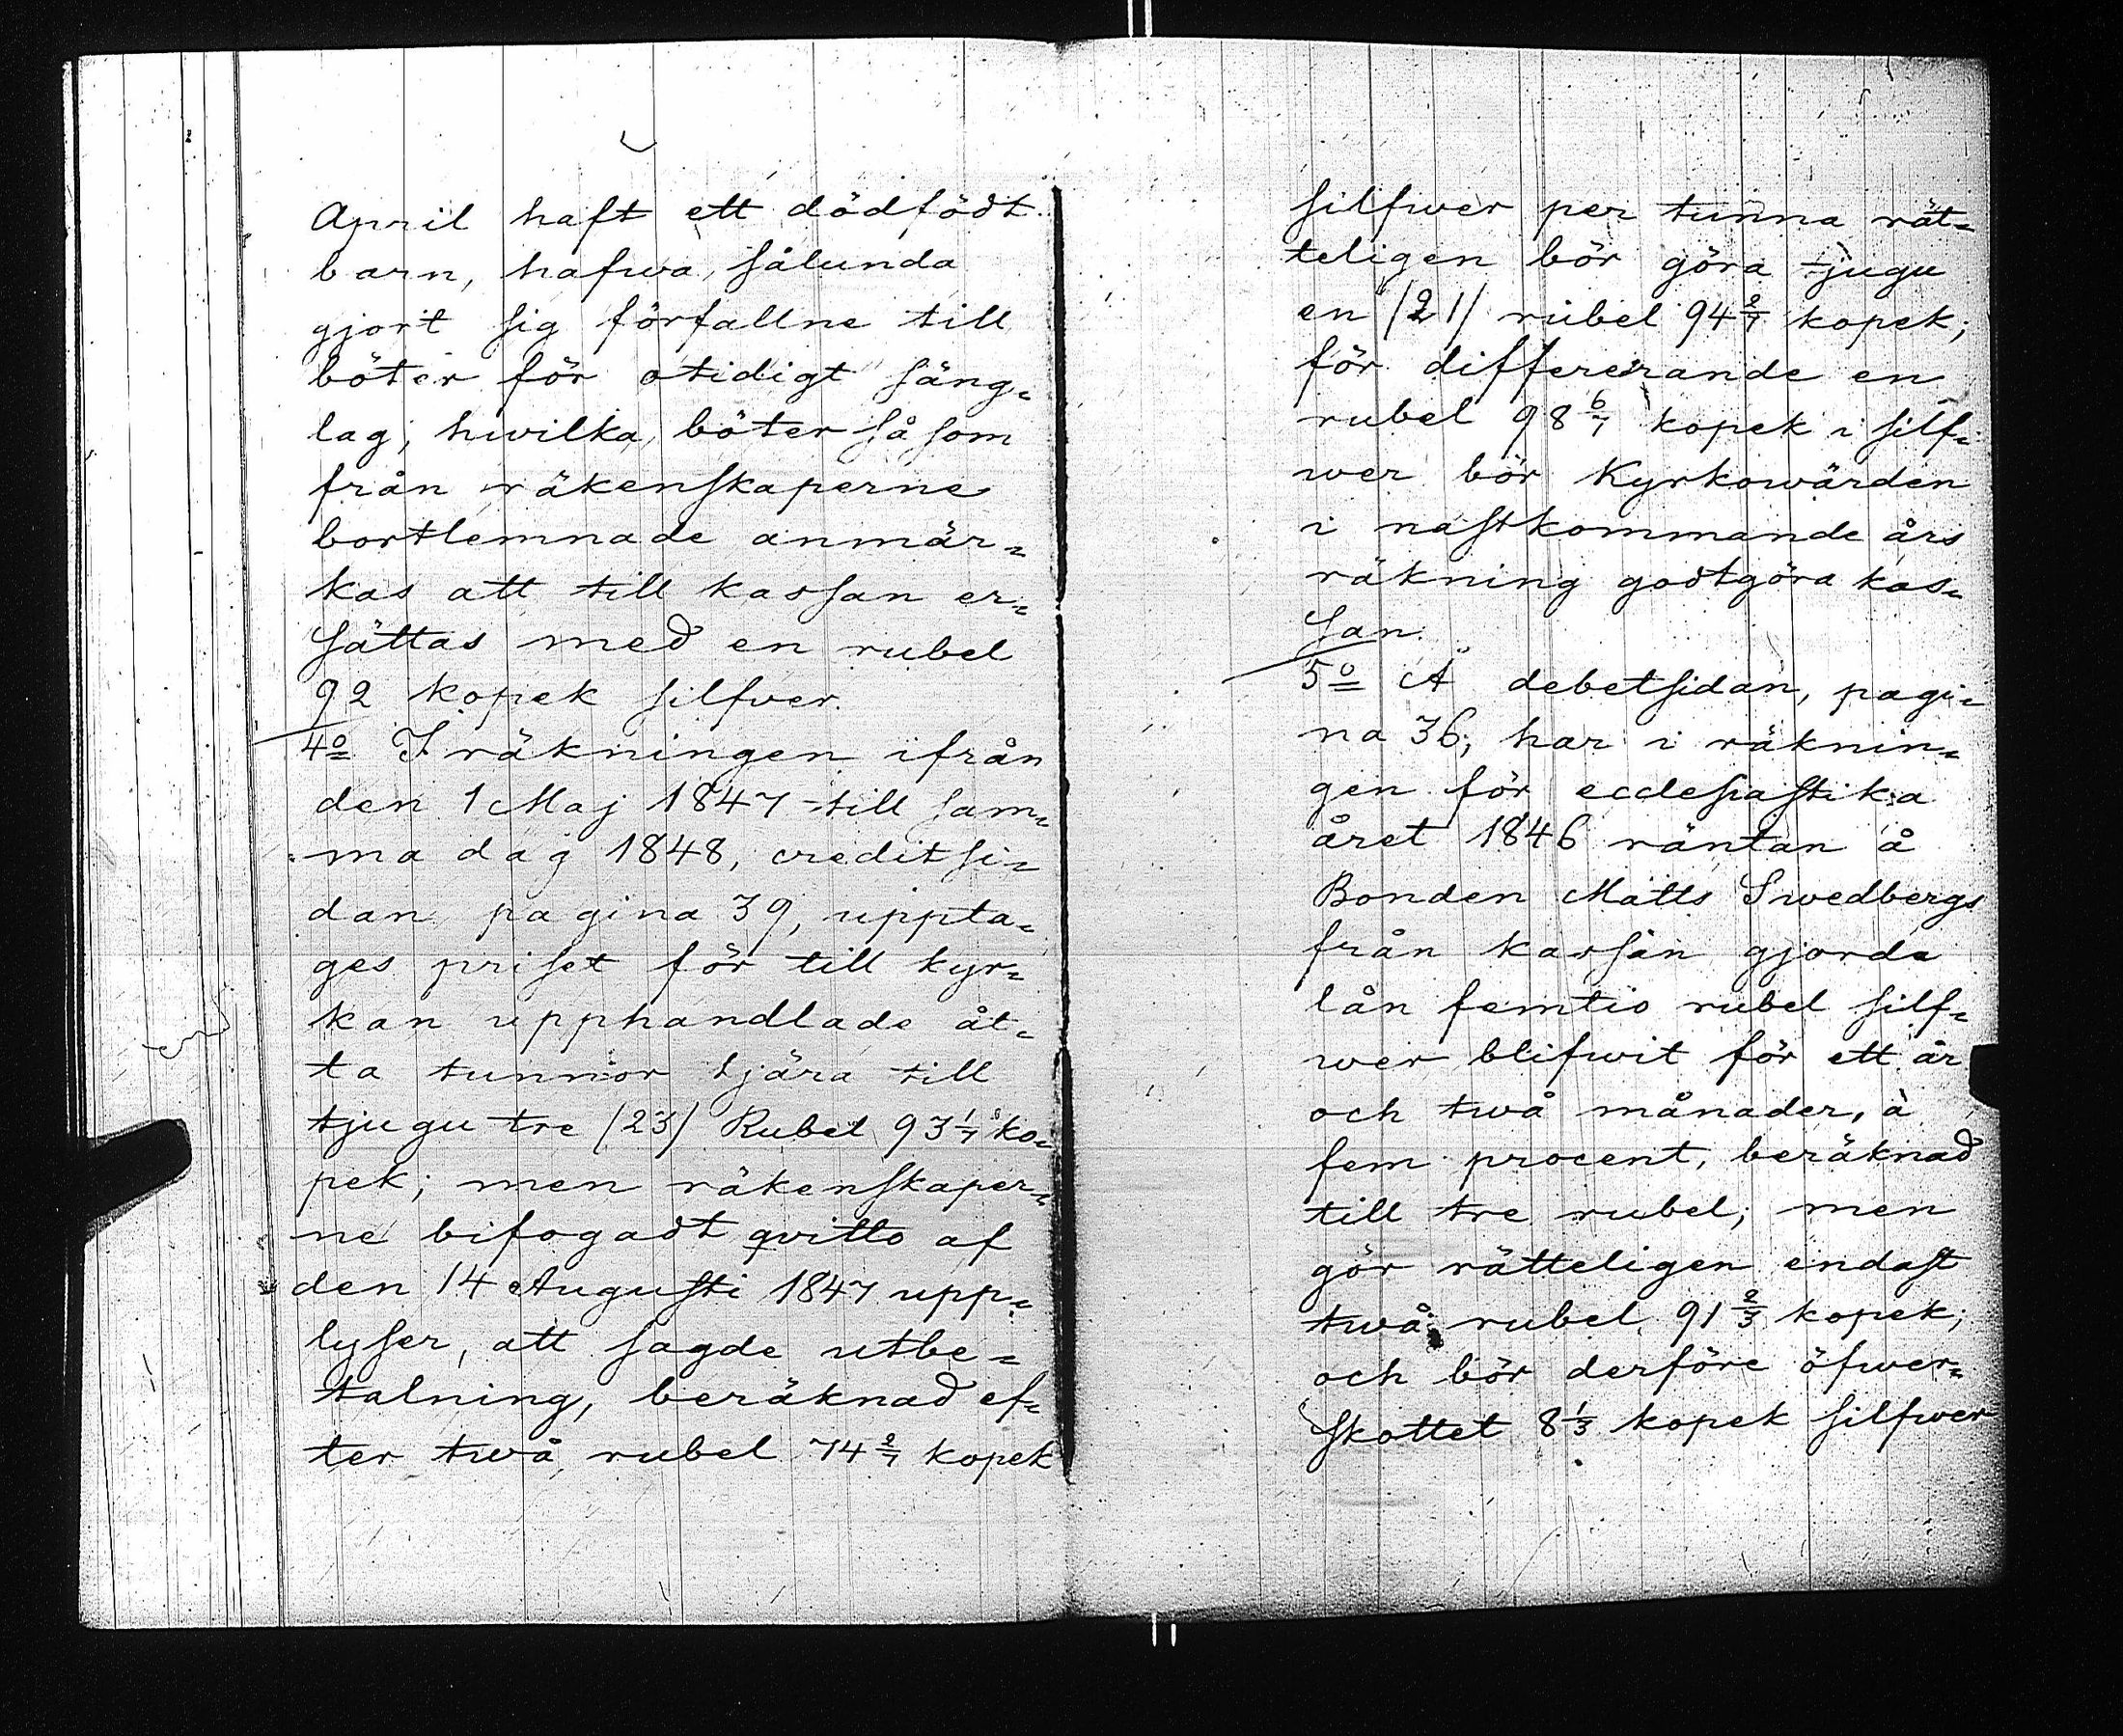 April haft ett dödfödt
barn, hafwa sålunda
gjort sig förfallne till
böter för otidigt säng-
lag; hwilka böter såsom
från räkenskaperne
bortlemnade anmär-
kas att till kassan er-
sättas med en rubel
92 kopek silfver.
4o I räkningen ifrån
den 1 Maj 1847 till sam-
ma dag 1848, creditsi-
dan pagina 39, uppta-
ges priset för till kyr-
kan upphandlade åt-
ta tunnor tjära till
tjugutre /23/ Rubel 93 1/7 ko-
pek; men räkenskaper-
ne bifogadt qvitto af
den 14 Augusti 1847 upp-
lyser, att sagde utbe-
talning, beräknad ef-
ter twå rubel 74 2/7 kopek
silfwer per tunna rät-
teligen bör göra tjugu
en /21/ rubel 94 2/7 kopek;
för differerande en
rubel 98 6/7 kopek i silf-
wer bör Kyrkowärden
i nästkommande års
räkning godtgöra kas-
san.
5o Å debetsidan, pagi-
na 36, har i räknin-
gen för ecclesiastika
året 1846 räntan å
Bonden Matts Swedbergs
från kassan gjorda
lån femtio rubel silf-
wer blifwit för ett år
och twå månader, à
fem procent, beräknad
till tre rubel; men
gör rätteligen endast
twå rubel 91 2/3 kopek;
och bör derföre öfwer-
skottet 8 1/3 kopek silfwer